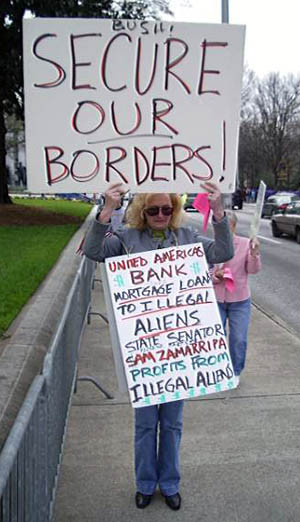 BUSH!
SECURE
OUR
BORDERS!
UNITED AMERICAS
BANK
MORTGAGE LOANS
TO ILLEGAL
ALIENS
STATE SENATOR
SAM ZAMARRIPA
PROFITS FROM
ILLEGAL ALIENS